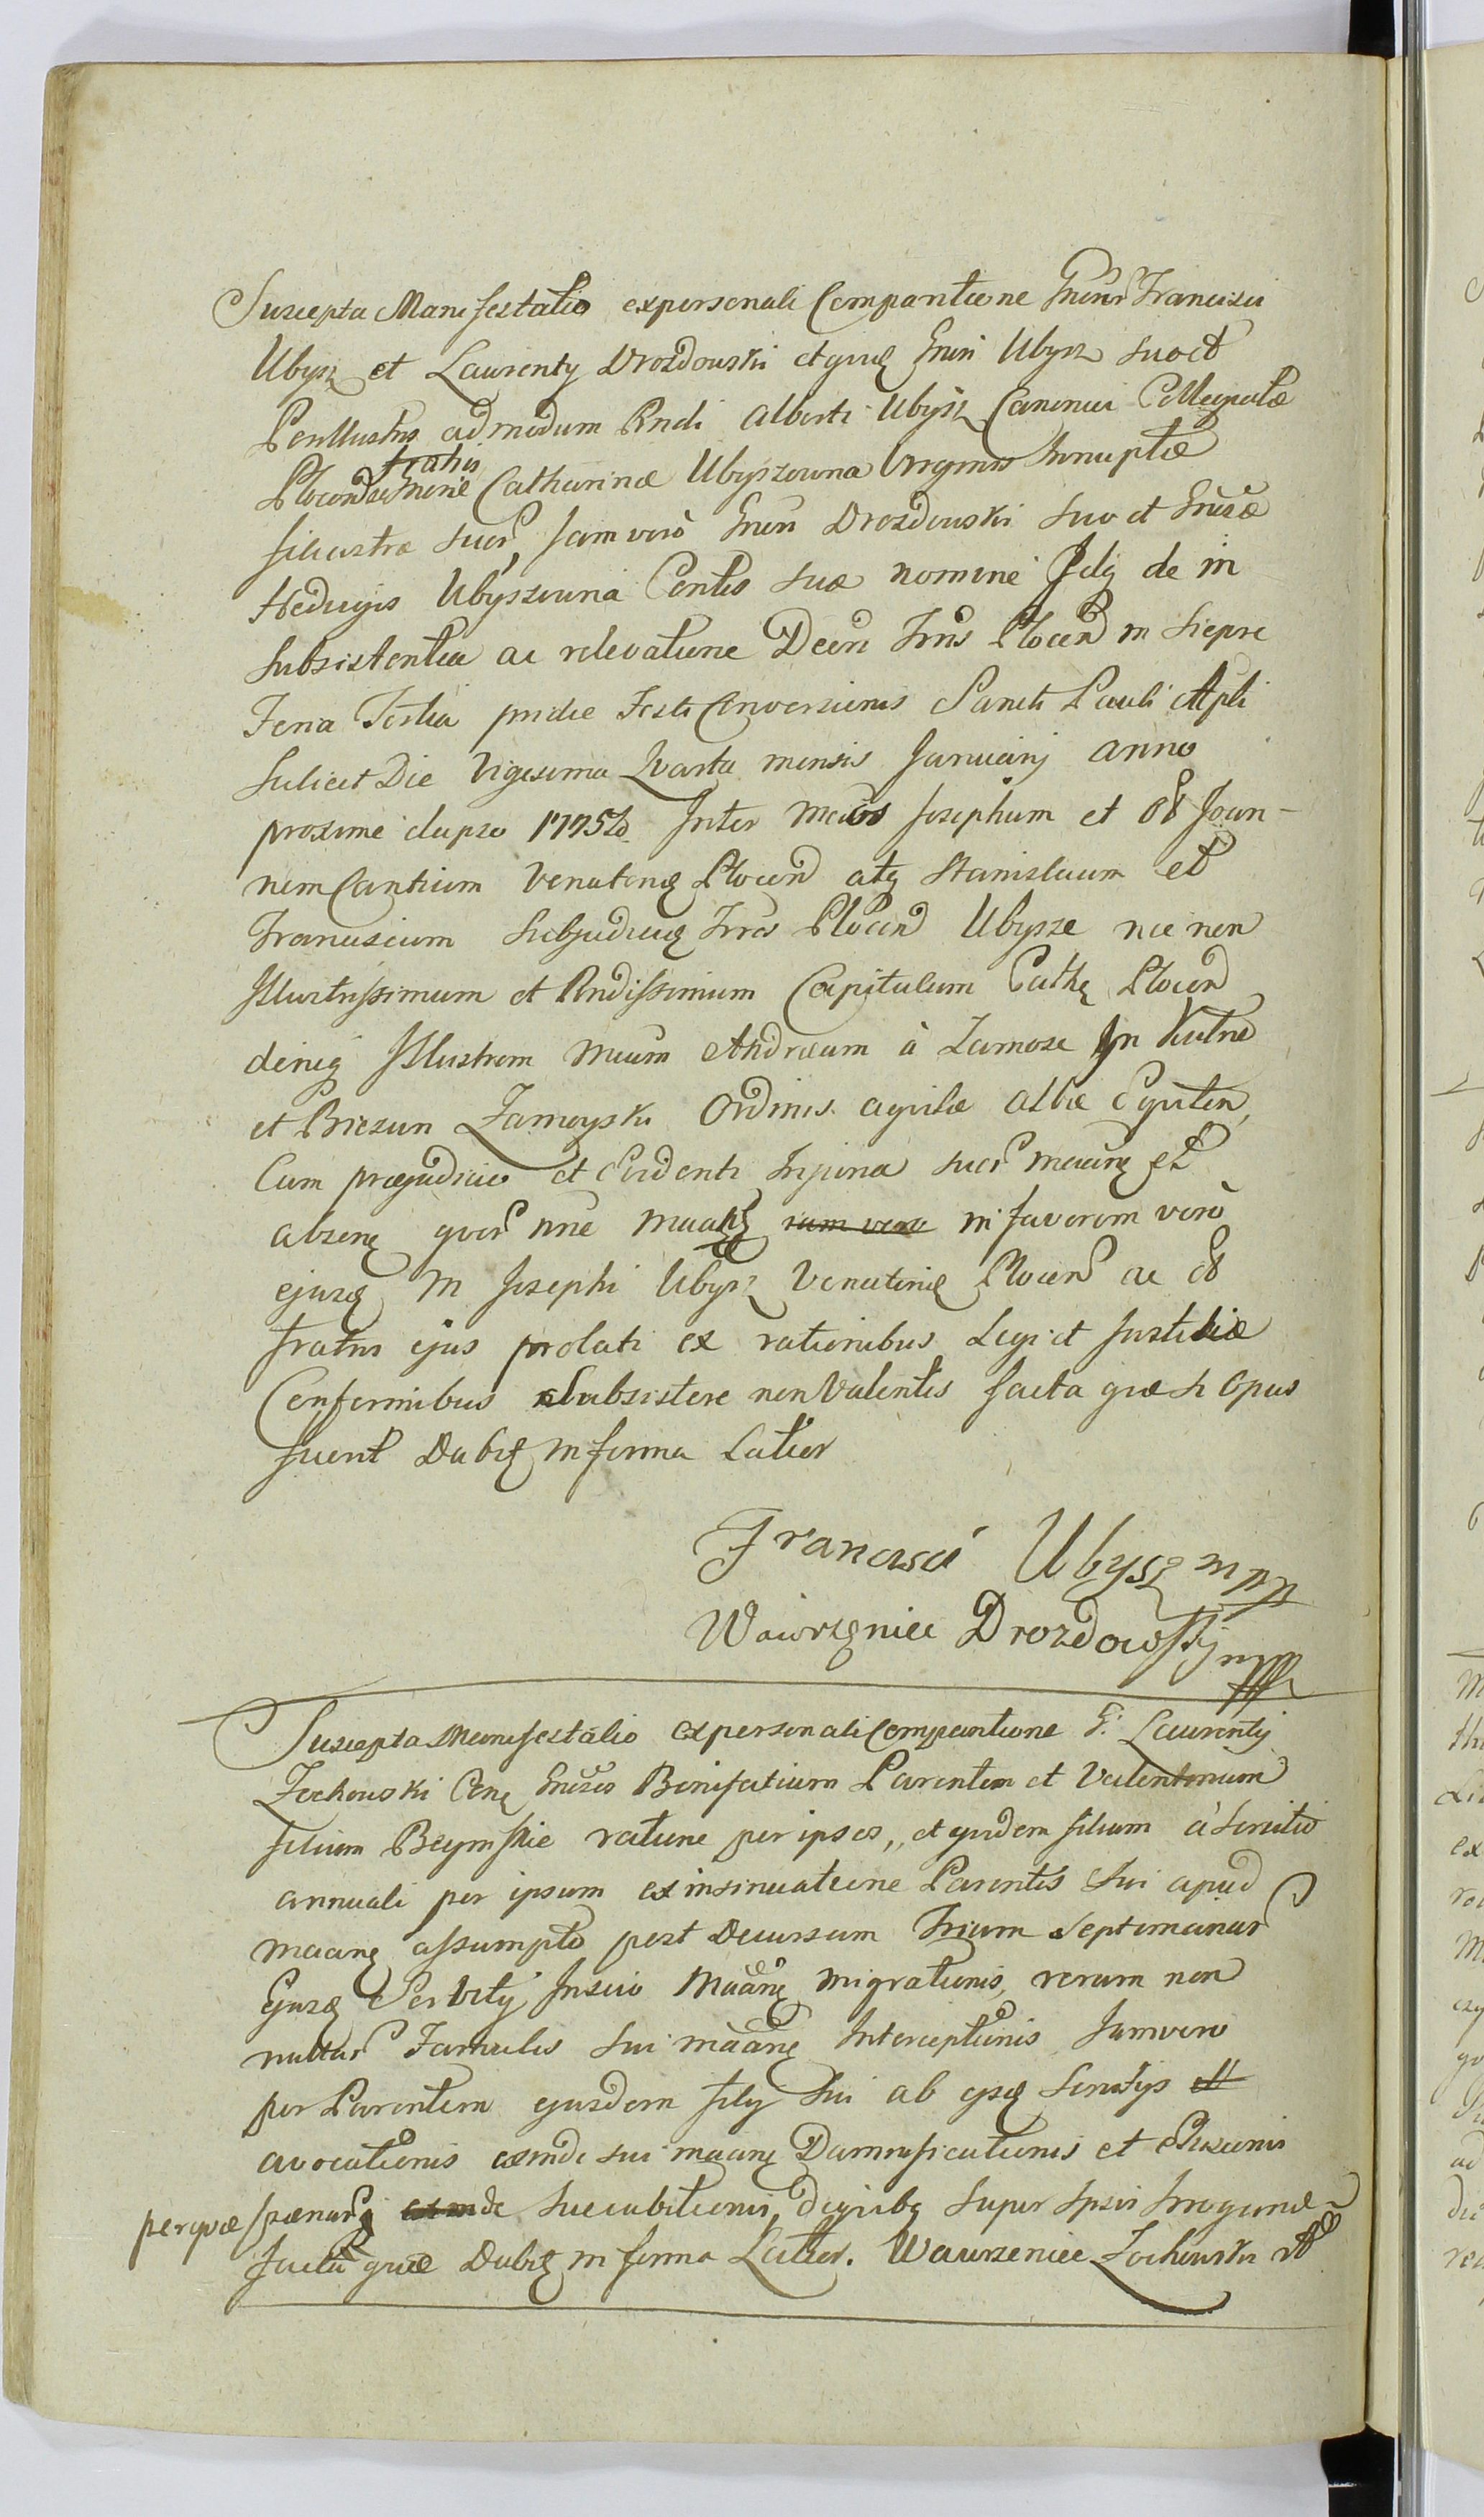 Suscepta Manifestatio ex personali Comparitione Gnoūr Francisci
Ubysz et Laurenty Drozdowski et quidẽ Gnẽri Ubysz suo et
Perillustris admodum Rndi Alberti Ubysz Canonici Collegiatæ
fratris
Plocen̄ ac Gnenẽ Catharinæ Ubyszowna Virginis Innuptæ
filiastræ suar̄, Jam verò Gnẽri Drozdowski suo et Gnẽsæ
Hedvigis Ubyszowna Contlis suæ nomine fclŷ de in
subsistentia ac relevatione Decri Trris Plocen̄ in Sieprc
Feria Tertia pridie Festi Conversionis Sancti Pauli Apli
scilicet Die Vigesima Quarta mensis Januarij anno
proxime elapso 1775to Inter Mcos Josephum et OO Joan-
nem Cantium Venatorẽ Plocen̄ atq Stanislaum et
Franciscum Subjudicẽ Trrs Plocen̄ Ubysze nec non
Illustrissimum et Rndissimum Capitulum Cathẽ Plocen̄
deniq Illustrem Mcum Andræam à Zamosc In Kutno
et Biezun Zamoyski Ordinis aquilæ albæ Equitem,
Cum præjudicio et Evidenti Injuria suar̄ mcanẽ et
absenẽ quor̄ nne mcatẽ iam vero in favorem verò
ejusdẽ M Josephi Ubysz Venatoris Plocen̄ ac O
fratris ejus prolati ex rationibus Legi et Justitiæ
Conformibus subsistere non Valentis facta quæ si Opus
fuerit Dabitẽ in forma Latior
Francisci Ubysz mpp
Wawrzeniec Drozdowski mpp
Suscepta Manifestatio ex personali Comparitione G. Laurenty
Zochowski Conẽ Gnẽsos Bonifatium Parentem et Valentinum
filium Beymskie ratione per ipsos, et quidem filium à servitio
annuali per ipsum ex insinuatione Parentis sui apud
mcanẽ assumpto post Decursum Trium Septimanar̄
Ejusdẽ Servitÿ Inscio Mcanẽ migrationis, rerum non
nullar̄ Famulis sui mcanẽ Interceptionis Jam vero
per Parentem ejusdem filÿ sui ab ejsdẽ servitÿs et
avocationis exinde sui mcanẽ Damnificationis et Elusionis
per quæ pœnarẽ exinde succubitionis, de quibẽ super ipsis Irrogand-
facta quæ Dabitẽ in forma Latior. Wawrzeniec Zochowski